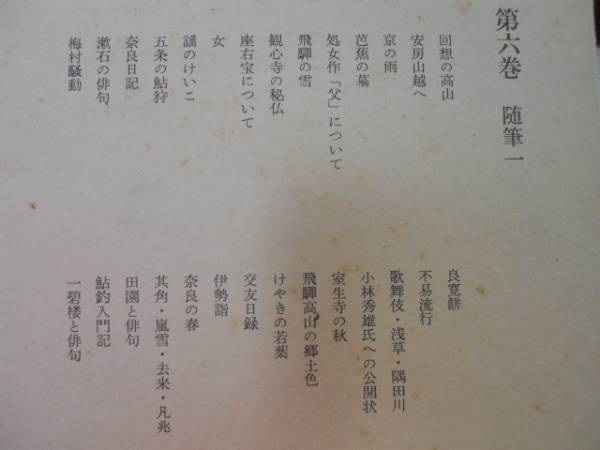 第六巻 随筆一
回想の高山
安房山越へ
京の雨
芭蕉の墓
処女作「父」について
飛騨の雪
観心寺の秘仏
座右宝について
女
謡のけいこ
五条の鮎狩
奈良日記
漱石の俳句
梅村騒動
良寛餅
不易流行
歌舞伎・浅草・隅田川
小林秀雄氏への公開状
室生寺の秋
飛騨高山の郷土色
けやきの若葉
交友日録
伊勢詣
奈良の春
其角・嵐雪・去来・凡兆
田園と俳句
鮎釣入門記
一碧楼と俳句